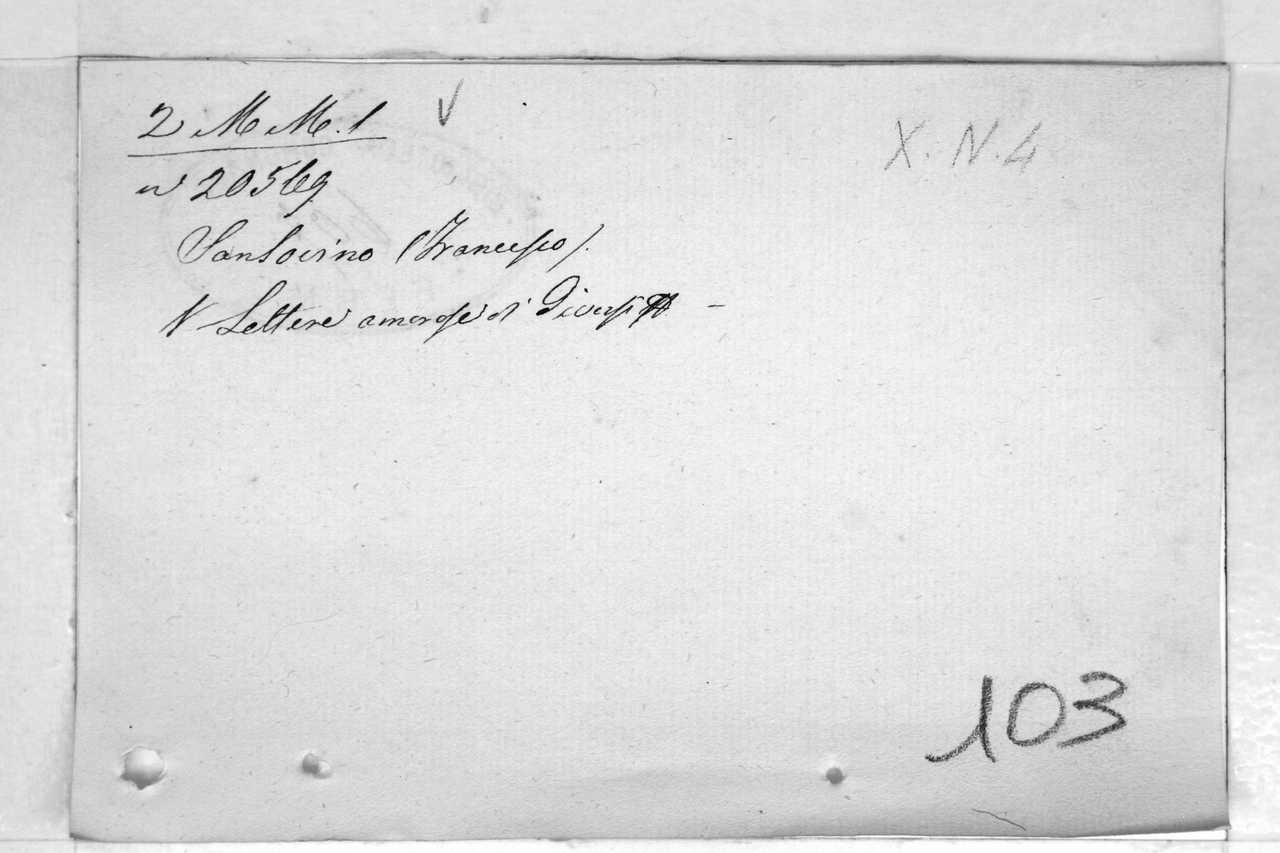 2 M M. 1
V
X. N. 4
n° 20569
Sansovino (Francesco).
Lettere amorose di Diversi
103